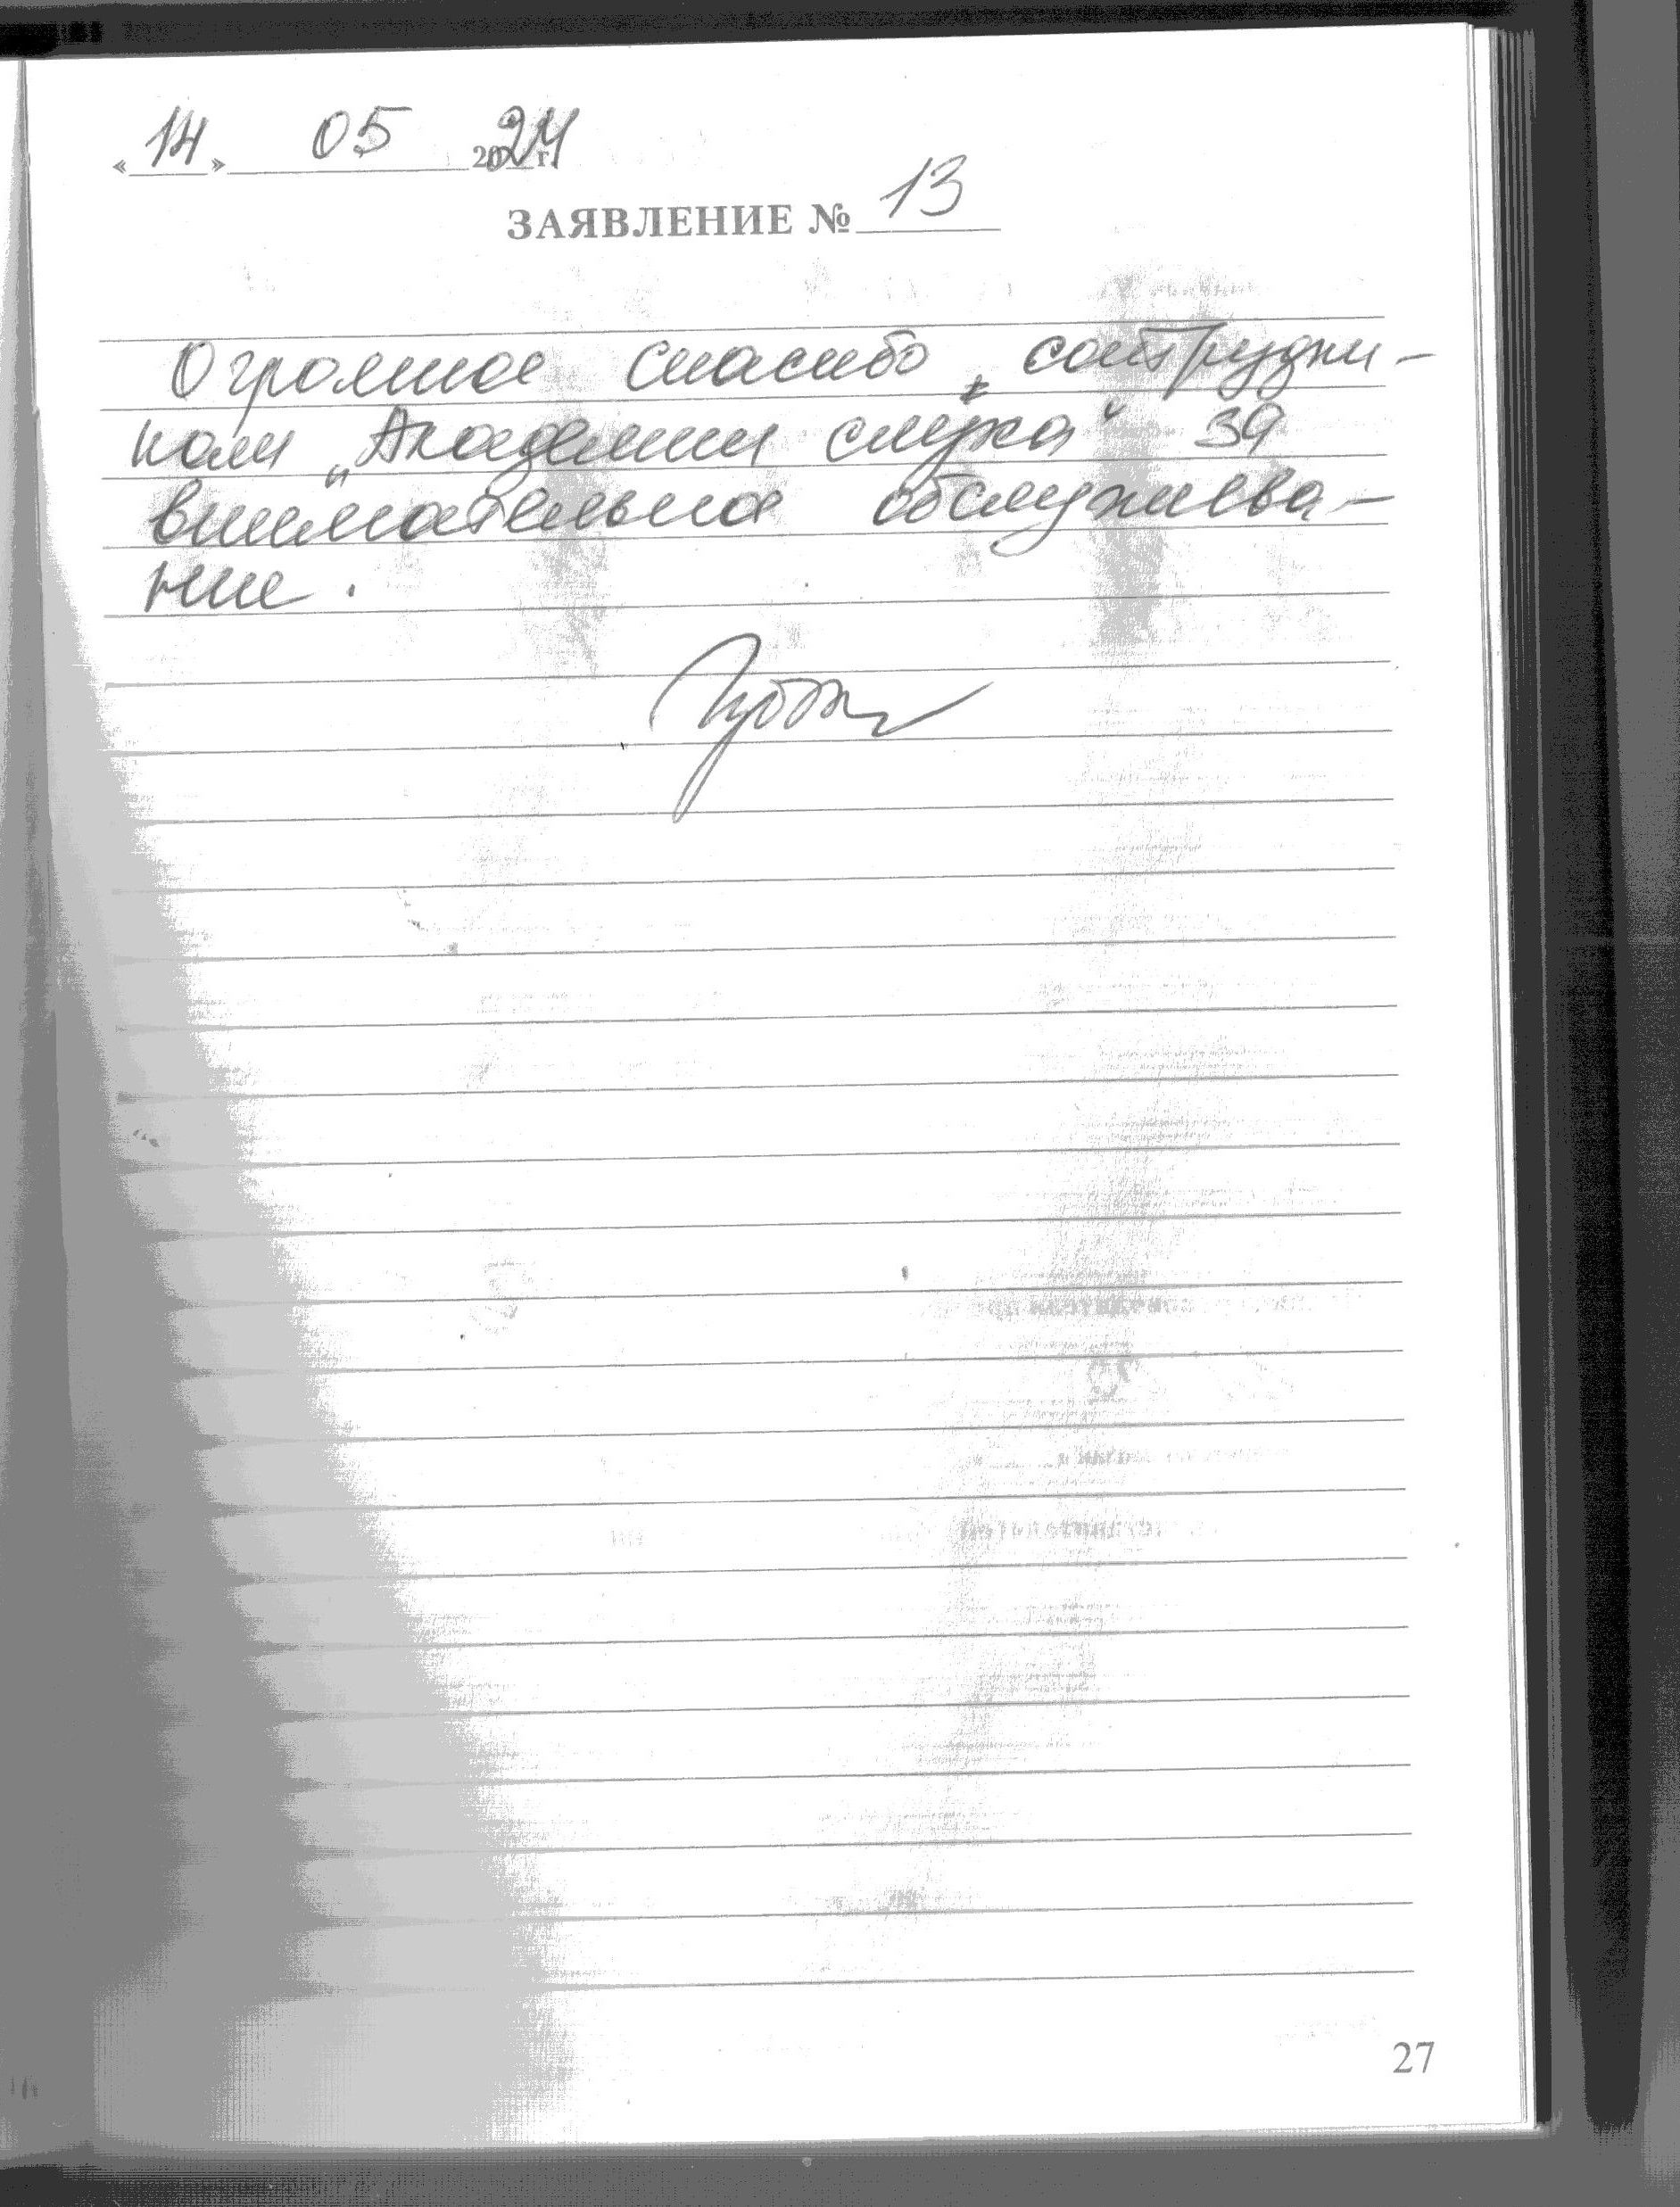 «14» 05 2024 г.
ЗАЯВЛЕНИЕ № 13
Огромное спасибо сотрудни-
кам „Академии слуха" за
внимательное обслужива-
ние.
27